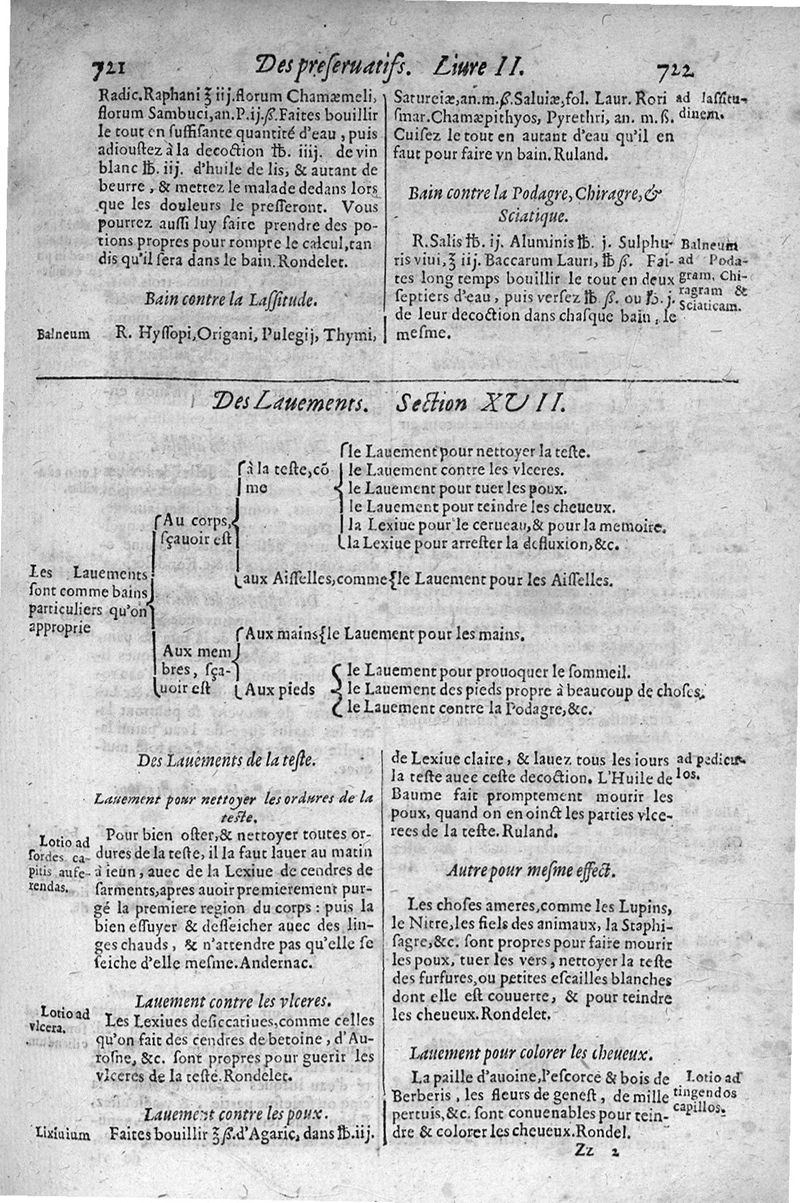 721
Des preſeruatifs. Liure II.
722
Radic. Raphani ℥ iij. florum Chamæmeli,
florum Sambuci, an. P. ij. ß. Faites bouillir
le tout en ſuffiſante quantité d'eau, puis
adiouſtez à la decoction ℔. iiij. de vin
blanc ℔. iij. d'huile de lis, & autant de
beurre, & mettez le malade dedans lors
que les douleurs le preſſeront. Vous
pourrez auſſi luy faire prendre des po-
tions propres pour rompre le calcul, tan
dis qu'il ſera dans le bain. Rondelet.
Bain contre la Laſſitude.
Balneum
R. Hyſſopi, Origani, Pulegij, Thymi,
Satureiæ, an. m. ß. Saluiæ, fol. Laur. Rori
ſmar. Chamæpithyos, Pyrethri, an. m. ß.
Cuiſez le tout en autant d'eau qu'il en
faut pour faire vn bain. Ruland.
ad laſſitu-
dinem.
Bain contre la Podagre, Chiragre, &
Sciatique.
R. Salis ℔. ij. Aluminis ℔. j. Sulphu-
ris viui, ℥ iij. Baccarum Lauri, ℔ ß. Fai-
tes long temps bouillir le tout en deux
ſeptiers d'eau, puis verſez ℔. ß. ou ℔. j.
de leur decoction dans chaſque bain, le
meſme.
Balneum
ad Poda-
gram, Chi-
ragram &
Sciaticam.
Des Lauements. Section XVII.
Les Lauements
ſont comme bains
particuliers qu'on
approprie
Au corps,
ſçauoir eſt
à la teſte, cō
me
le Lauement pour nettoyer la teſte.
le Lauement contre les vlceres.
le Lauement pour tuer les poux.
le Lauement pour teindre les cheueux.
la Lexiue pour le cerueau, & pour la memoire.
la Lexiue pour arreſter la defluxion, &c.
aux Aiſſelles, comme {le Lauement pour les Aiſſelles.
Aux mem
bres, ſça-
uoir eſt
Aux mains {le Lauement pour les mains.
Aux pieds
le Lauement pour prouoquer le ſommeil.
le Lauement des pieds propre à beaucoup de choſes.
le Lauement contre la Podagre, &c.
Des Lauements de la teſte.
Lauement pour nettoyer les ordures de la
teſte.
Lotio ad
ſordes ca-
pitis aufe-
rendas.
Pour bien oſter, & nettoyer toutes or-
dures de la teſte, il la faut lauer au matin
à ieun, auec de la Lexiue de cendres de
ſarments, apres auoir premierement pur-
gé la premiere region du corps : puis la
bien eſſuyer & deſſeicher auec des lin-
ges chauds, & n'attendre pas qu'elle ſe
ſeiche d'elle meſme. Andernac.
Lauement contre les vlceres.
Lotio ad
vlcera.
Les Lexiues deſiccatiues, comme celles
qu'on fait des cendres de betoine, d'Au-
roſne, &c. ſont propres pour guerir les
vlceres de la teſte. Rondelet.
Lauement contre les poux.
Lixiuium
Faites bouillir ℥ ß. d'Agaric, dans ℔. iij.
de Lexiue claire, & lauez tous les iours
la teſte auec ceſte decoction. L'Huile de
Baume fait promptement mourir les
poux, quand on en oinct les parties vlce-
rees de la teſte. Ruland.
ad pedicu-
los.
Autre pour meſme effect.
Les choſes ameres, comme les Lupins,
le Nitre, les fiels des animaux, la Staphi-
ſagre, &c. ſont propres pour faire mourir
les poux, tuer les vers, nettoyer la teſte
des furfures, ou petites eſcailles blanches
dont elle eſt couuerte, & pour teindre
les cheueux. Rondelet.
Lauement pour colorer les cheueux.
La paille d'auoine, l'eſcorce & bois de
Berberis, les fleurs de geneſt, de mille
pertuis, &c. ſont conuenables pour tein-
dre & colorer les cheueux. Rondel.
Lotio ad
tingendos
capillos.
Zz 2